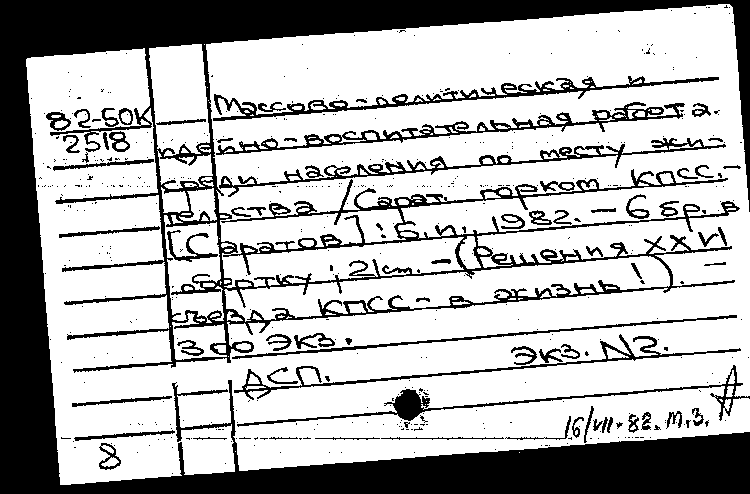 82-БОК
2518
Массово-политическая и
идейно-воспитательная работа
среди населения по месту жи-
тельства / Сарат. горком КПСС.-
[Саратов.] : Б.и., 1982. – 6 бр. в
обертку ; 21 см. – (Решения XXVI
съезда КПСС- в жизнь!). –
300 экз.
экз. N2.
ДСП.
16/VII-82. М.З.
8